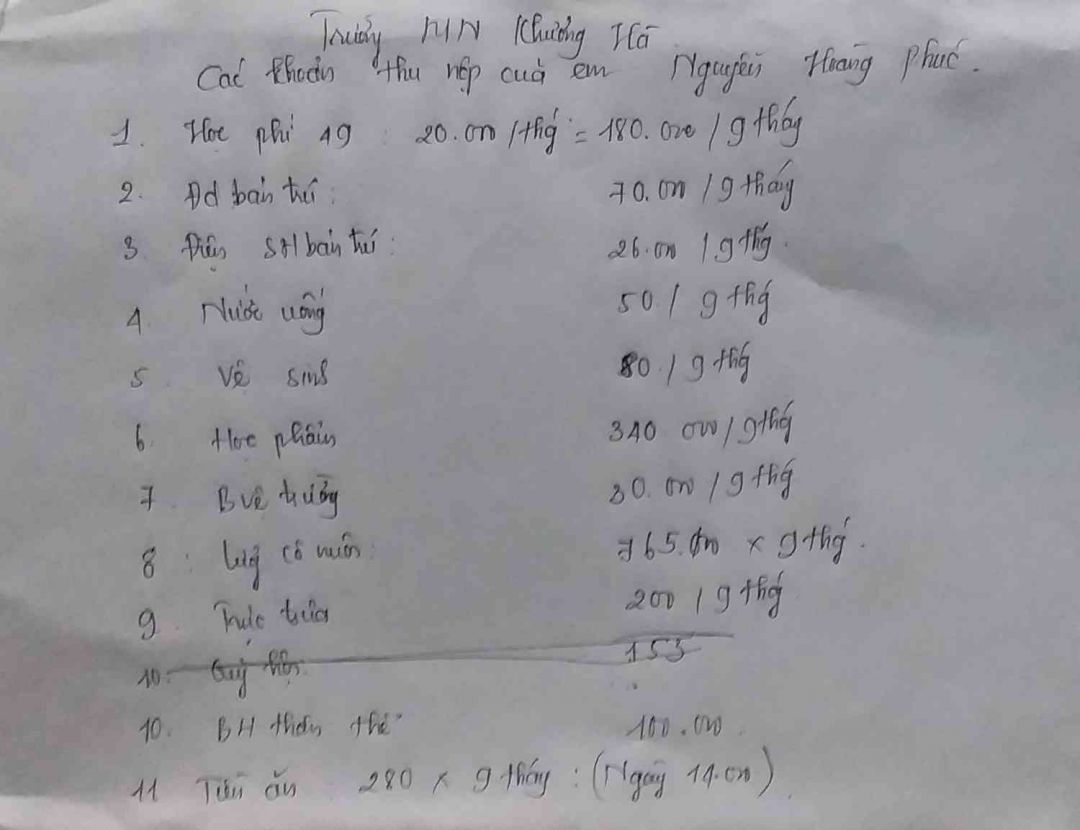 Trường MN Khương Hà
Các khoản thu nộp của em Nguyễn Hoàng Phúc.
1. Học phí 19 : 20.000 / thg = 180.000 / 9 tháng
2. Đd bán trú : 70.000 / 9 tháng
3 Điện SH bán trú : 26.000 / 9 thg.
4 Nước uống 50 / 9 thg
5 Vệ sinh 80 / 9 thg
6. Học phẩm 340 000 / 9 thg
7. B vệ trường 30.000 / 9 thg
8 : Lương cô nuôi : 765.000 x 9 thg.
9 Trực trưa 200 / 9 thg
10. Quỹ 155
10. BH thân thể 100.000
11 Tiền ăn 280 x 9 tháng : (Ngày 14.000)